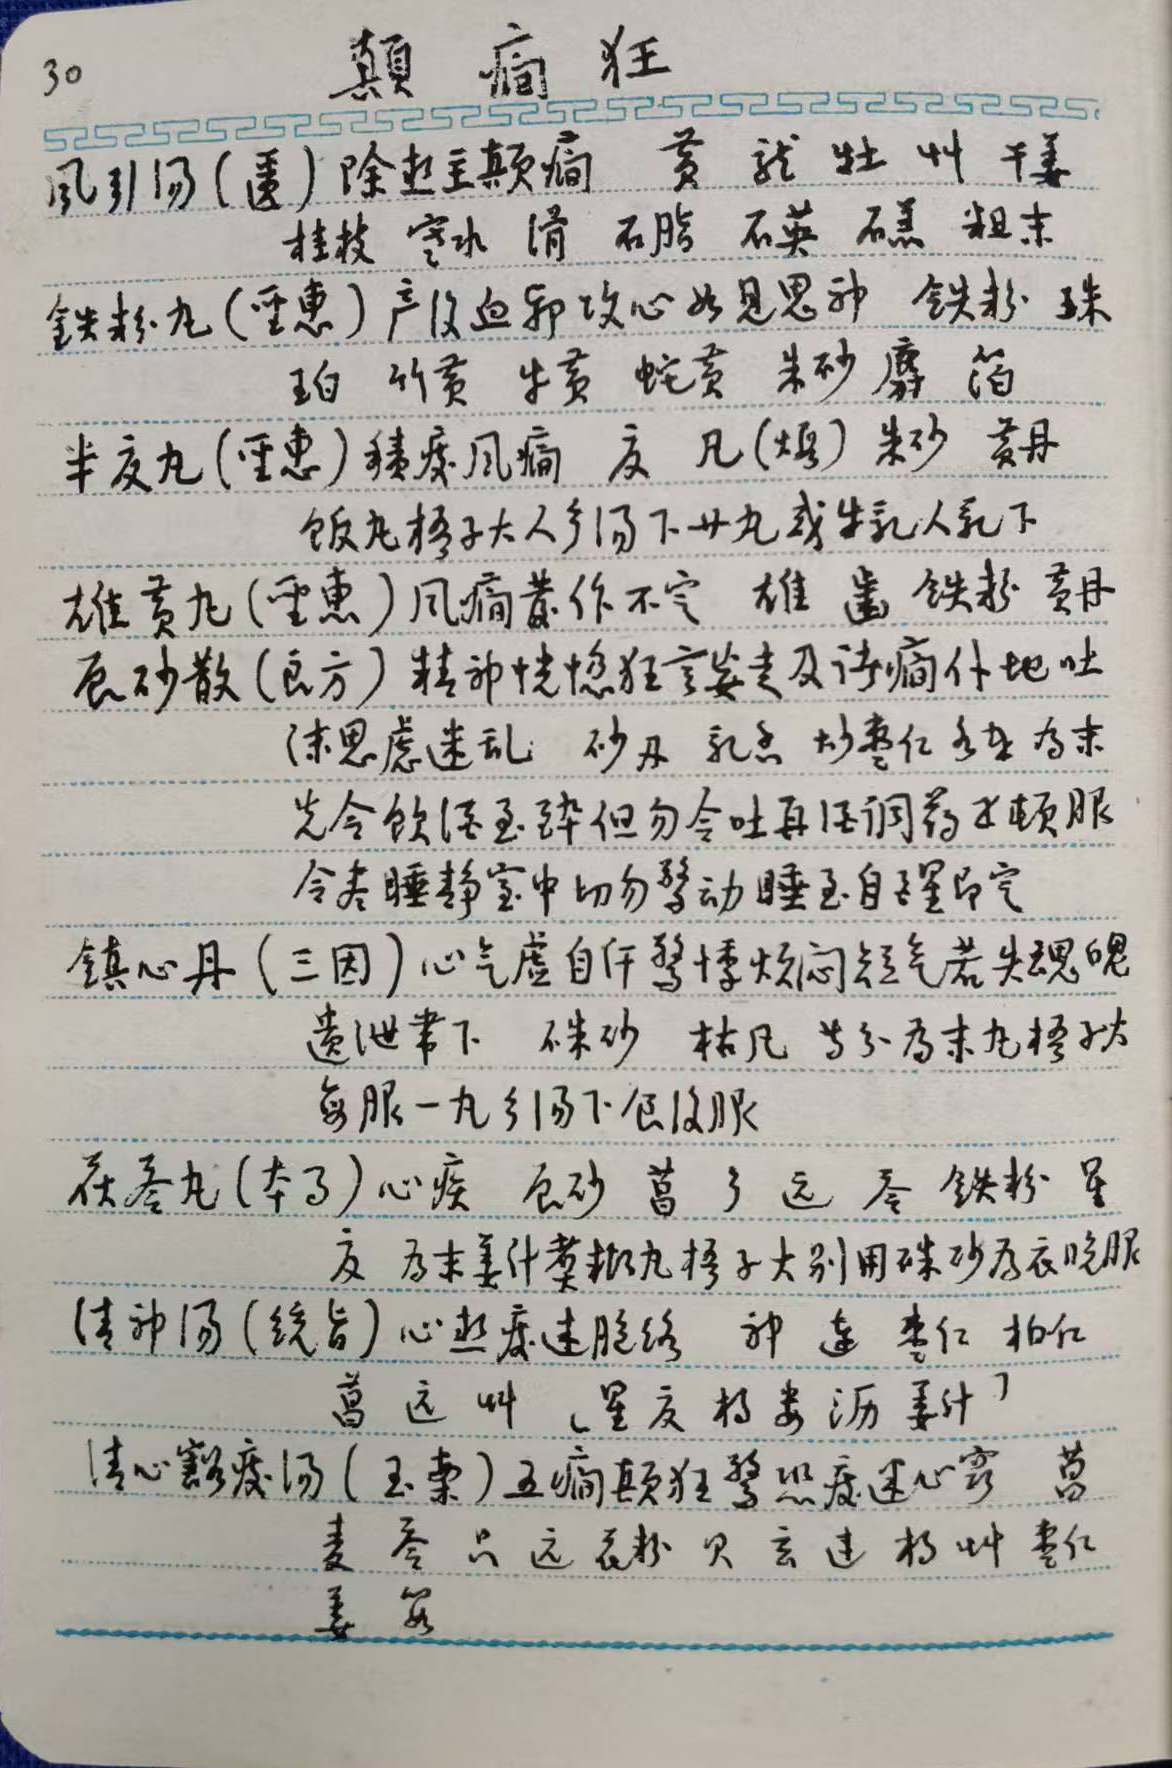 30
颠 痫 狂
风引汤(匮)除热主颠痫 黄 龙 牡 艸 干姜
桂枝 寒水 滑 石脂 石英 石羔 粗末
铁粉丸(圣惠)产后血邪攻心如见鬼神 铁粉 珠
珀 竹黄 牛黄 蛇黄 朱砂 麝 箔
半夏丸(圣惠)痰风痫 夏 凡(煅) 朱砂 黄丹
饭丸梧子大人参汤下廿丸或牛乳人乳下
雄黄丸(圣惠)风痫发作不定 雄 铁粉 黄丹
辰砂散(良方)精神恍惚狂言妄走及诸痫仆地吐
沫思虑迷乱 砂丹 乳香 炒枣仁 为末
先令饮酒至醉但勿令吐再酒调药末顿服
令睡静室中切勿惊动睡至自醒即定
镇心丹(三因)心气虚自汗惊悸烦闷短气若失魂魄
遗泄带下 硃砂 枯凡 等分为末丸梧子大
每服一丸参汤下食后服
茯苓丸(本事)心疾 辰砂 菖 参 远 苓 铁粉 星
夏 为末姜汁糊丸梧子大别用硃砂为衣晚服
清神汤(统旨)心热痰迷胞络 神 连 枣仁 柏仁
菖 远 艸 星 夏 娄 沥 姜汁
清心豁痰汤(玉案)五痫颠狂惊恐痰迷心窍 菖
麦 苓 只 远 花粉 贝 玄 连 桔 艸 枣仁
姜